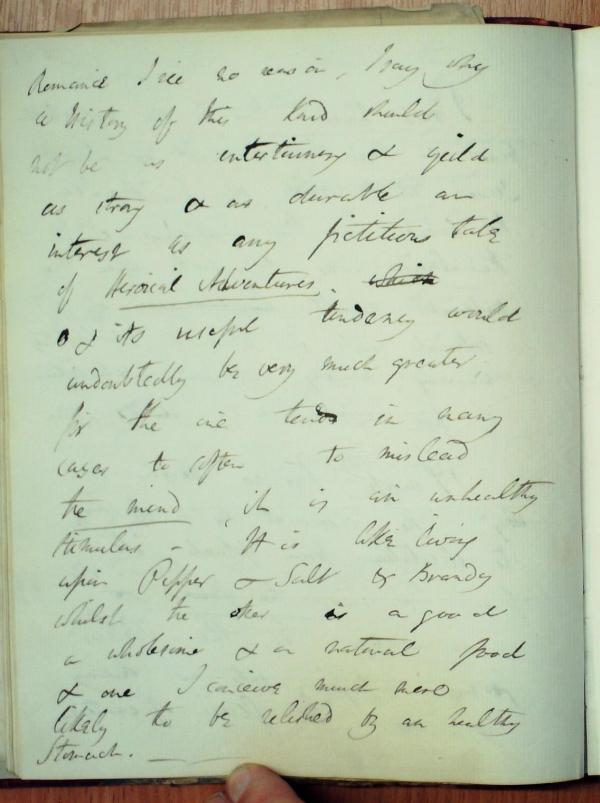 Romance I see no reason, I say why
a History of this kind should
not be as entertaining & yield
as strong & as durable an
interest as any fictitious tale
of Heroical Adventures. which
& its useful tendency would
undoubtedly be very much greater
for the one tends in many
cases to often to mislead
the mind, it is an unhealthy
stimulus - It is like living
upon Pepper & Salt & Brandy
whilst the other is a good
a wholesome & a natural food
& one I conceive much more
likely to be relished by an healthy
Stomach. —